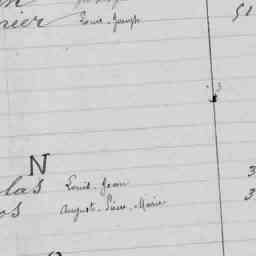 nier Louis-Joseph 51
3
N
las Louis-Jean 3
os August-Pierre-Marie 3